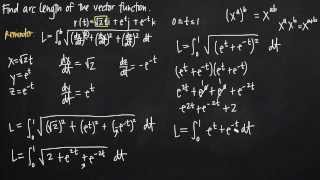 Find arc length of the vector function.
r(t)=√2t i + e^t j + e^-t k  0≤t≤1
Remember: L=∫_a^b √((dx/dt)²+(dy/dt)²+(dz/dt)²) dt
x=√2t  dx/dt=√2  dz/dt=-e^-t
y=e^t
z=e^-t  dy/dt=e^t
L=∫_0^1 √((√2)²+(e^t)²+(-e^-t)²) dt
L=∫_0^1 √(2+e^2t+e^-2t) dt
(x^a)^b=x^ab
x^a x^b=x^a+b
L=∫_0^1 √((e^t+e^-t)²) dt
(e^t+e^-t)(e^t+e^-t)
e^2t+e^0+e^0+e^-2t
e^2t+e^-2t+2
L=∫_0^1 e^t+e^-t dt